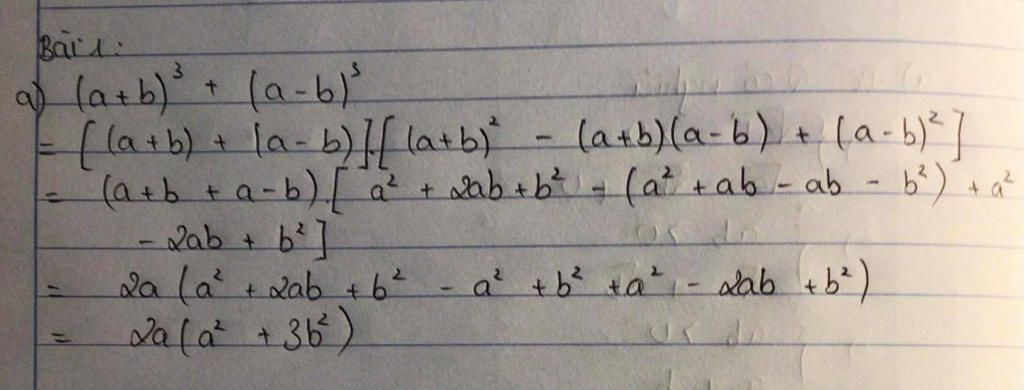 Bài 1:
a) (a+b)³ + (a-b)³
= [(a+b) + (a-b)].[(a+b)² - (a+b)(a-b) + (a-b)²]
= (a+b + a-b).[a² + 2ab + b² - (a² + ab - ab - b²) + a²
- 2ab + b²]
= 2a (a² + 2ab + b² - a² + b² + a² - 2ab + b²)
= 2a(a² + 3b²)